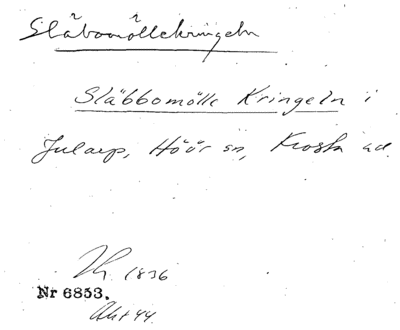 Släbomöllekringeln
Släbbomölle Kringeln i
Jularp, Höör sn, Frosta hd.
1836
Nr 6853.
Akt 44.